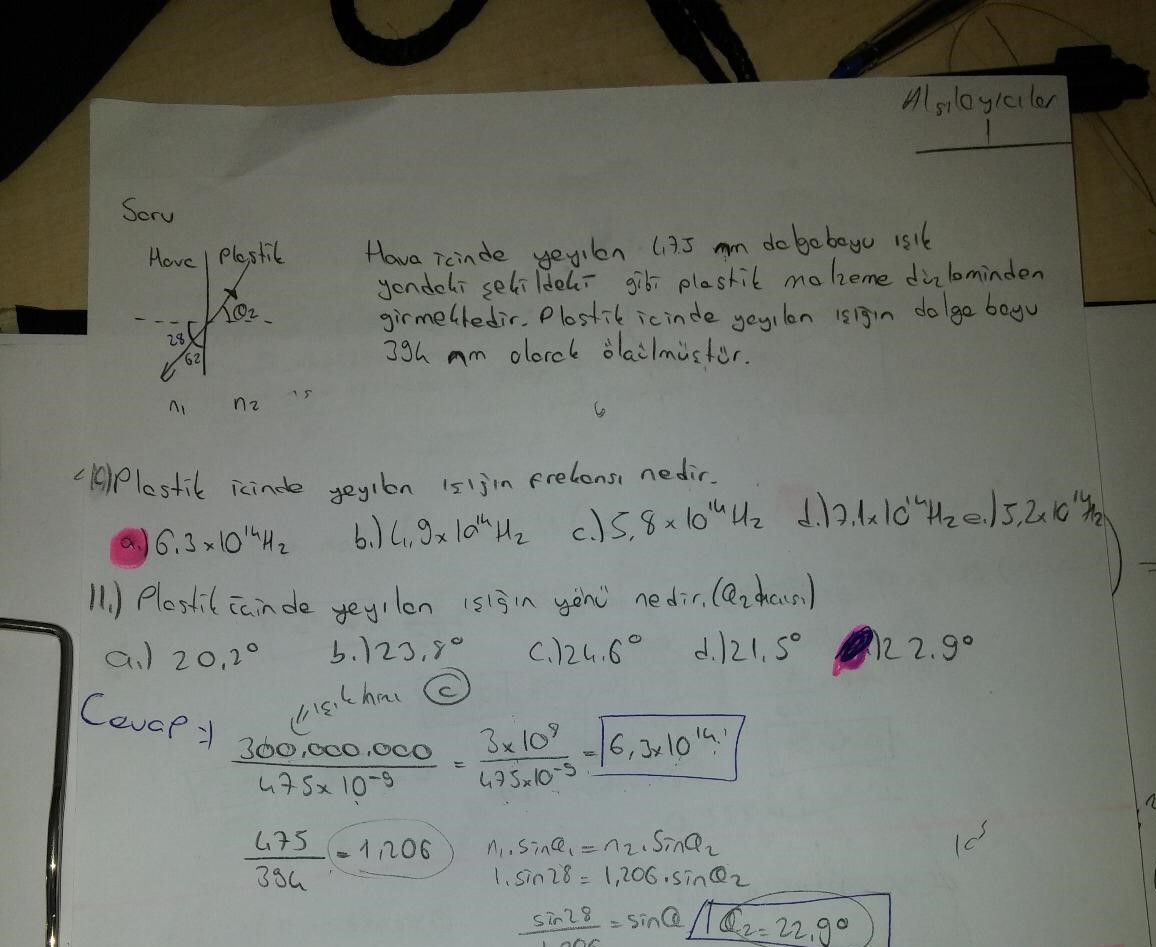 Algılayıcılar
1
Soru
Hava Plastik
Q2
28
62
n1 n2
Hava içinde yayılan 475 nm dalgaboyu ışık
yandaki şekildeki gibi plastik malzeme düzleminden
girmektedir. Plastik içinde yayılan ışığın dalga boyu
394 nm olarak ölçülmüştür.
Plastik içinde yayılan ışığın frekansı nedir.
a.) 6.3x10¹⁴Hz b.) 4,9x10¹⁴Hz c.) 5,8x10¹⁴Hz d.) 7.1x10¹⁴Hz e.) 5,2x10¹⁴Hz
11.) Plastik içinde yayılan ışığın yönü nedir. (Q2 açısı)
a.) 20,2° b.) 23,8° c.) 24.6° d.) 21,5° ) 22.9°
Cevap :)
ışık hızı (c)
300.000.000 / 475x10⁻⁹ = 3x10⁸ / 475x10⁻⁹ = 6,3x10¹⁴
475 / 394 = 1,206
n1.sinQ1 = n2.sinQ2
1.sin28 = 1,206.sinQ2
sin28 / 1,206 = sinQ Q2 = 22,9°